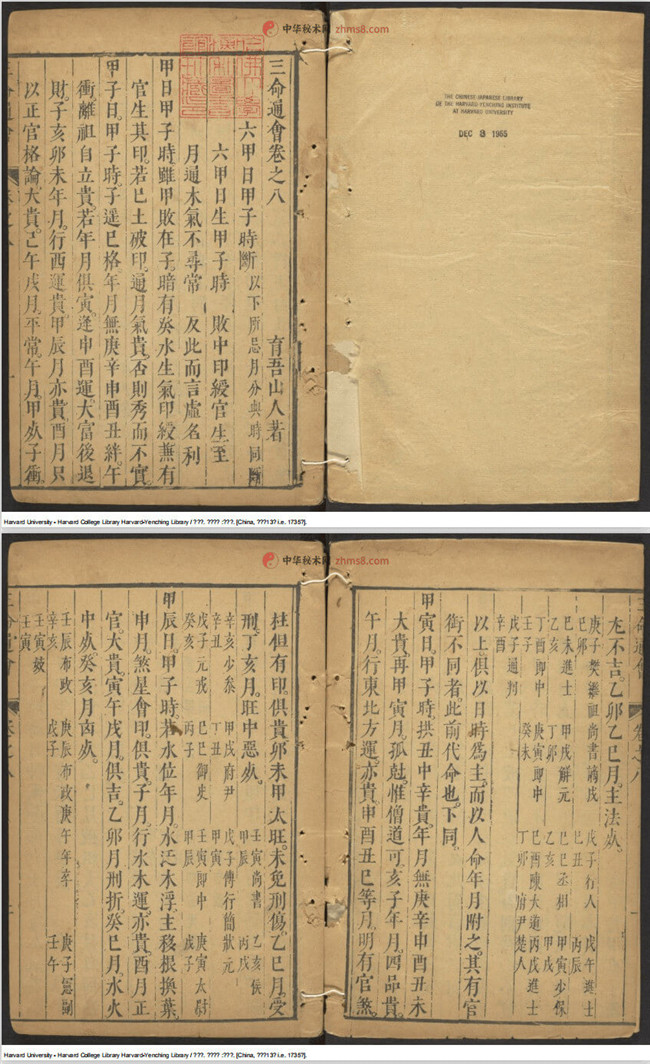 中华秘术网 zhms8.com
THE CHINESE-JAPANESE LIBRARY
OF THE HARVARD-YENCHING INSTITUTE
AT HARVARD UNIVERSITY
DEC 3 1965
三命通會卷之八
育吾山人著
六甲日甲子時斷 以下所忌月分與時同斷
六甲日生甲子時 敗中印綬官生至
月通木氣不尋常 反此而言虛名利
甲日甲子時雖甲敗在子暗有癸水生氣印綬兼有
官生其印若巳土破印通月氣貴否則秀而不實
甲子日甲子時子遥巳格年月無庚辛申酉丑絆午
衝離祖自立貴若年月俱寅逢申酉運大富後退
財子亥卯未年月行西運貴甲辰月亦貴酉月只
以正官格論大貴巳午戌月平常午月甲炏子衝
Harvard University - Harvard College Library Harvard-Yenching Library / ???. ???? :???. [China, ???13? i.e. 1735?].
中华秘术网 zhms8.com
尢不吉乙卯乙巳月主法炏
庚子樊繼祖尚書 戊子行人 戊午進士
己卯 己丑 丙辰
己未進士 甲戌解元 己巳丞相 甲寅少保
乙亥 丁卯 乙亥 甲戌
丁酉郎中 庚寅郎中 己酉陳大道 丙戌進士
壬子 癸未 丁卯 府尹楚人
戊子通判
辛酉
以上俱以日時爲主而以人命年月附之其有官
銜不同者此前代命也下同
甲寅日甲子時拱丑中辛貴年月無庚辛申酉丑未
大貴再甲寅月孤尅惟僧道可亥子年月四品貴
午月行東北方運亦貴申酉丑巳等月明有官煞
柱但有印俱貴卯未甲太旺未免刑傷乙巳月受
刑丁亥月旺中惡炏
壬寅尚書 乙亥侯
甲辰 丙戌
辛亥少叅 甲戌府尹 戊子傅行簡狀元
辛丑 丁丑 甲寅
戊子元戎 己巳御史 壬寅郎中 庚寅太尉
癸亥 丙子 甲辰 戊子
甲辰日甲子時若水位年月水泛木浮主移根換葉
申月煞星會印俱貴子月行水木運亦貴酉月正
官大貴寅午戌月俱吉乙卯月刑折癸巳月水火
中炏癸亥月凶炏
壬辰布政 庚辰布政 庚午年卒
辛亥 戊子 壬午
壬寅
壬寅
Harvard University - Harvard College Library Harvard-Yenching Library / ???. ???? :???. [China, ???13? i.e. 1735?].